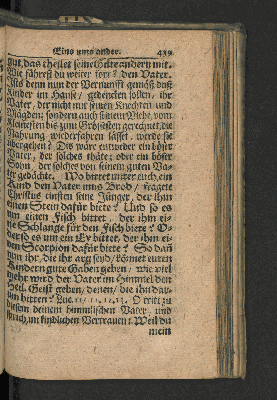 Eins ums ander. 419
gut, das theilet seine Selte andern mit.
Wie fährest du weiter fort? den Vater.
Ists denn nun der Vernunfft gemäß, daß
Kinder im Hause/ gedencken sollen, ihr
Vater, der nicht nur seinen Knechten und
Mägden; sondern auch seinem Viehe, vom
Kleinesten bis zum Grössesten gerechnet, die
Nahrung wiederfahren lässet, werde sie
übergehen? Das wäre entweder ein böser
Vater, der solches thäte; oder ein böser
Sohn, der solches von seinem guten Va-
ter gedächte. Wo bittet unter euch ein
Kind den Vater ums Brod/ fragete
Christus einsten seine Jünger, der ihm
einen Stein dafür biete? Und so es
um einen Fisch bittet, der ihm ei-
ne Schlange für den Fisch biete? O-
der so es um ein Ey bittet, der ihm ei-
nen Scorpion dafür biete? So dan
nun ihr, die ihr arg seyd/ könnet euren
Kindern gute Gaben geben/ wie viel
mehr wird der Vater im Himmel den
Heil. Geist geben/ denen/ die ihn dar-
um bitten? Luc. 11/ 11. 12. 13. O tritt zu
diesem deinem himmlischen Vater, und
sprich im kindlichen Vertrauen: Weil du
mein